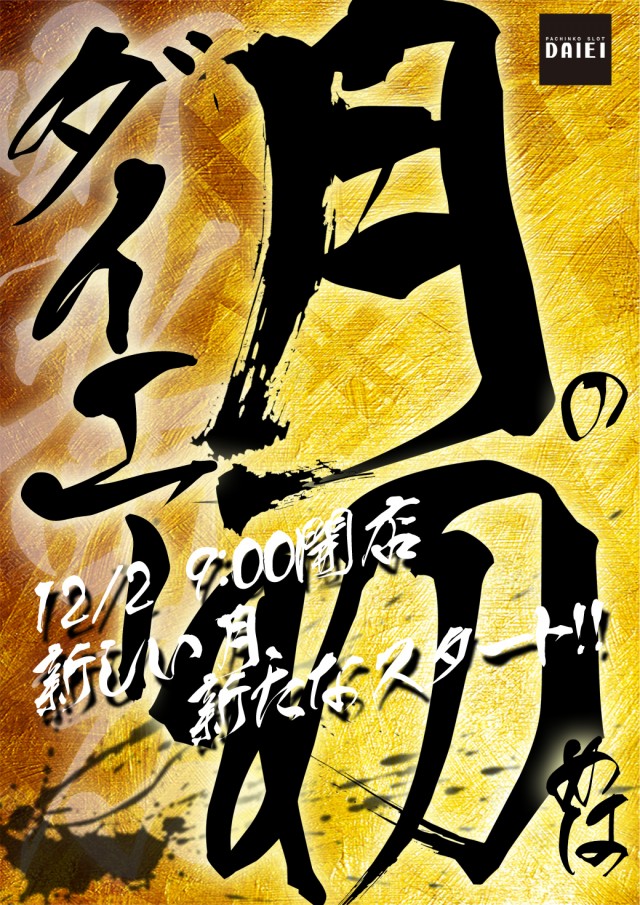 PACHINKO SLOT
DAIEI
月の初めは
ダイエー
12/2 9:00開店
新しい月、
新たなスタート!!